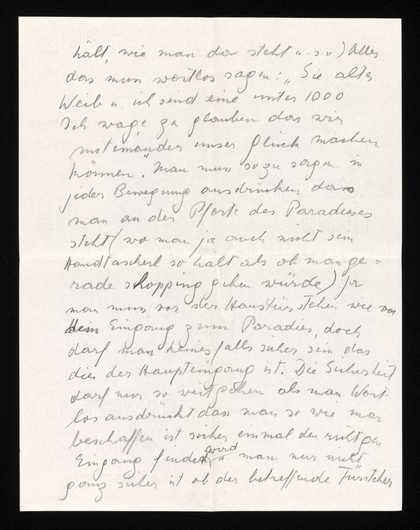 hält, wie man da steht u. s. w.) Alles
das muss wortlos sagen: „Sie altes
Weib u. ich sind eine unter 1000
Ich wage zu glauben das wir
miteinander unser Glück machen
können." Man muss sozusagen in
jeder Bewegung ausdrücken dass
man an der Pforte des Paradieses
steht (wo man ja auch nicht sein
Handtascherl so hält als ob man ge=
rade shopping gehen würde) ja
man muss vor der Haustür stehen wie vor
dem Eingang zum Paradies, doch
darf man keinesfalls sicher sein das
dies der Haupteingang ist. Die Sicherheit
darf nur so weit gehen als man Wort
los ausdrückt dass man so wie man
beschaffen ist sicher einmal den richtigen
Eingang finden wird u. man nur nicht
ganz sicher ist ob der betreffende Türsteher